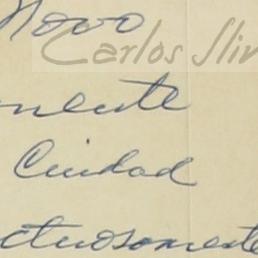 Novo
Carlos Slim
mente
Ciudad
ctuosamente